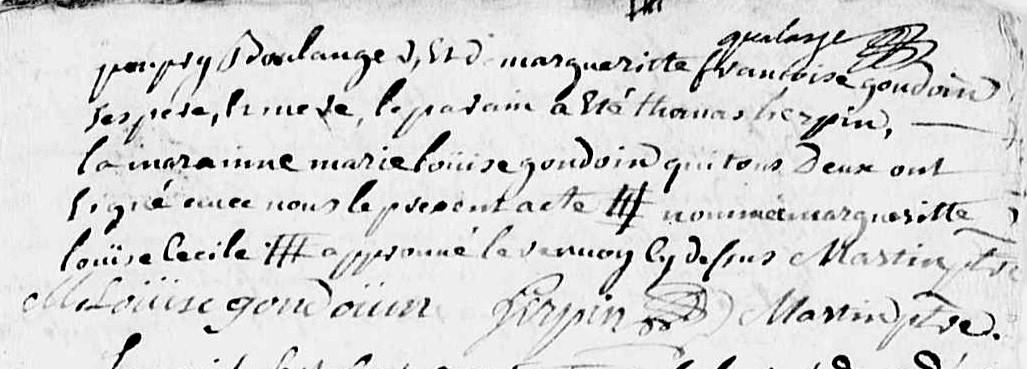 Boulanger, Et de margueritte françoise goudoin
ses pere, & mere, le parain a Eté thomas herpin,
la maraine marie loüise goudoin qui tous Deux ont
signé avec nous le present acte ⧻ nommée margueritte
loüise Cecile ⧻ approuvé le renvoy cy dessus Martin ptre
M Loüise goudoüin herpin Martin ptre.